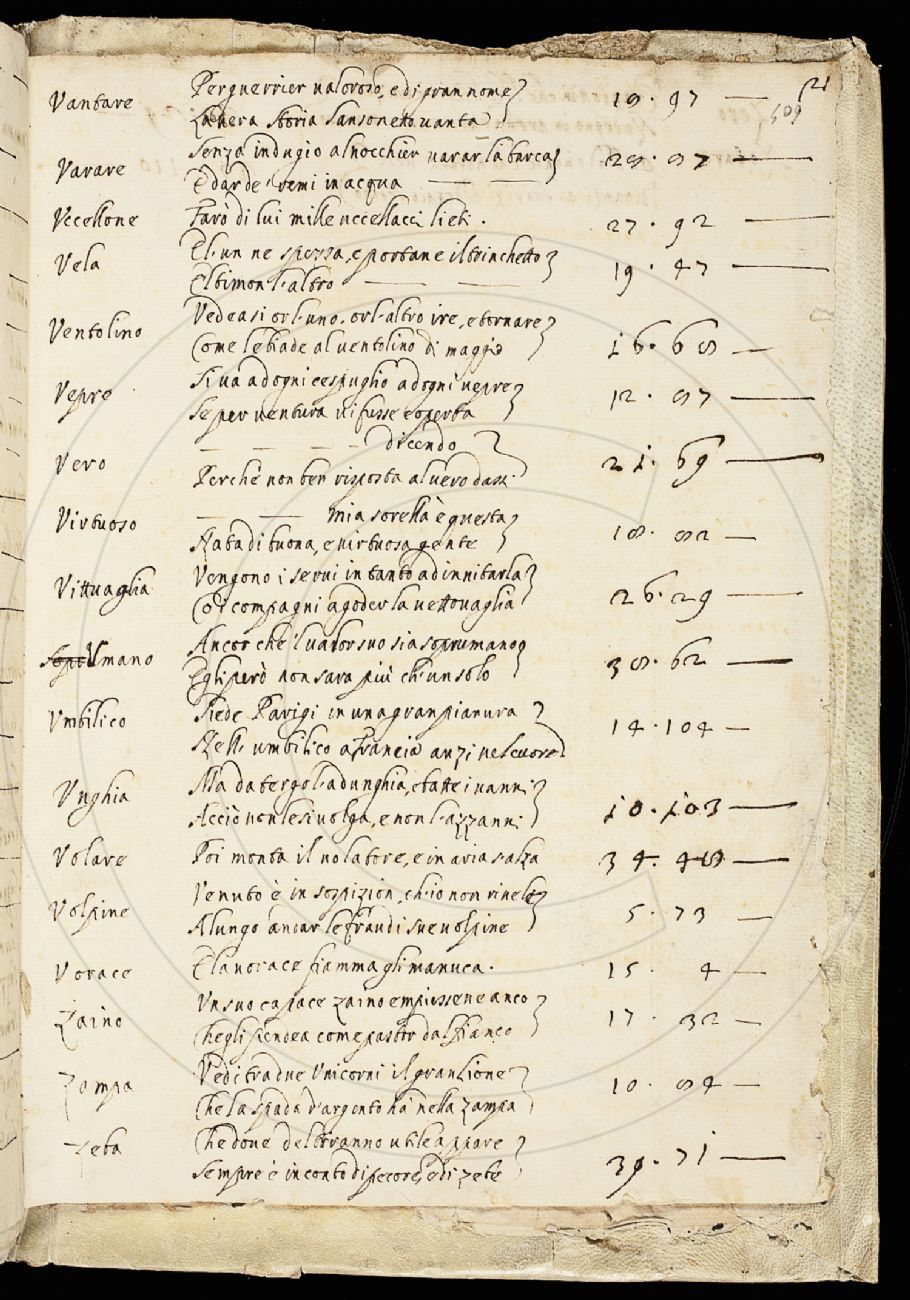 21
509
Vantare Per guerrier valoroso, e di gran nome 18. 97
La vera storia Sansonetto vanta
Varare Senza indugio al nocchier varar la barca 28. 87
E dar de' remi in acqua
Vccellone Farò di lui mille uccellacci lieti. 27. 92
Vela El'un ne spezza, e portane il trinchetto 19. 47
E'l timon l'altro
Ventolino Vedeasi or l'uno. or l'altro ire, e tornare 16. 68
Come le biade al uentolino di maggio
Vepre Si ua ad ogni cespuglio ad ogni uepre 12. 87
Se per uentura ui fusse coperta
dicendo
Vero Perchè non ben risposta al uero dassi 21. 69
mia sorella è questa
Virtuoso Nata di buona, e uirtuosa gente 18. 82
Vittuaglia Vengono i serui in tanto ad inuitarla 26. 29
Co i compagni a goder la uettouaglia
Vmano Ancor che 'l ualor suo sia soprumano 38. 62
Egli però non sara più ch'un solo
Vmbilico Siede Parigi in una gran pianura 14. 104
Nell' umbilico a Francia anzi nel cuore
Vnghia Ma da tergo l'adunghia, e batte i uanni 10. 103
Acciò non le si uolga, e non l'azzanni
Volare Poi monta il uolatore, e in aria s'alza 34. 48
Volpine Venuto è in sospizion, ch'io non riueli 5. 73
A lungo andar le fraudi sue uolpine
Vorace E la uorace fiamma gli manuca. 15. 4
Zaino Vn suo capace zaino empissene anco 17. 32
Che gli pendea come pastor dal fianco
Zampa Vedi tra due Vnicorni il gran lione 10. 84
Che la spada d'argento ha nella zampa
Zeba Che doue del tiranno utile appare 39. 71
Sempre è in conto di pecore, e di zebe